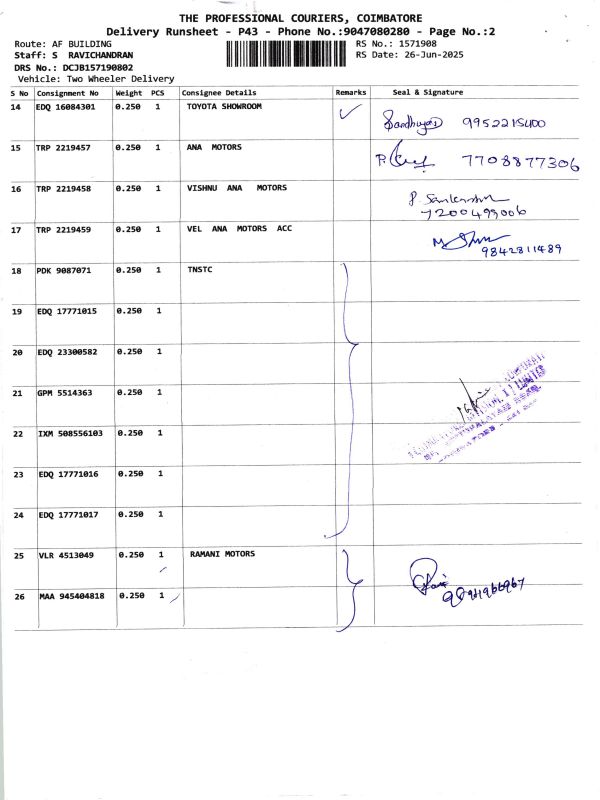 THE PROFESSIONAL COURIERS, COIMBATORE
Delivery Runsheet - P43 - Phone No.:9047080280 - Page No.:2
Route: AF BUILDING RS No.: 1571908
Staff: S RAVICHANDRAN RS Date: 26-Jun-2025
DRS No.: DCJB157190802
Vehicle: Two Wheeler Delivery
S No Consignment No Weight PCS Consignee Details Remarks Seal & Signature
14 EDQ 16084301 0.250 1 TOYOTA SHOWROOM
9952215400
15 TRP 2219457 0.250 1 ANA MOTORS
7708877306
16 TRP 2219458 0.250 1 VISHNU ANA MOTORS
7200499006
17 TRP 2219459 0.250 1 VEL ANA MOTORS ACC
9842811489
18 PDK 9087071 0.250 1 TNSTC
19 EDQ 17771015 0.250 1
20 EDQ 23300582 0.250 1
21 GPM 5514363 0.250 1
22 IXM 508556103 0.250 1
23 EDQ 17771016 0.250 1
24 EDQ 17771017 0.250 1
25 VLR 4513049 0.250 1 RAMANI MOTORS
26 MAA 945404818 0.250 1